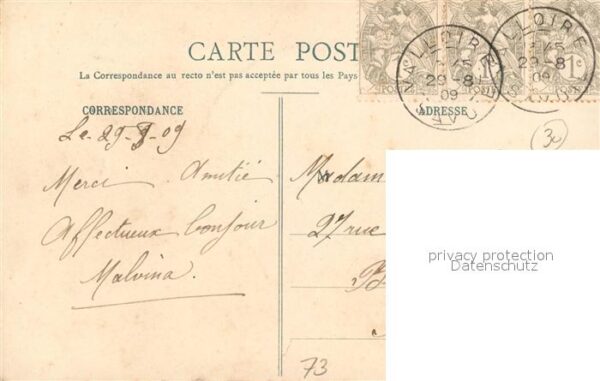 CARTE POST
La Correspondance au recto n'est pas acceptée par tous les Pays
CORRESPONDANCE
ADRESSE
VALLOIRE
29-8
09
VALLOIRE
29-8
09
1c
Le 29-8-09
Merci Amitié
Affectueux bonjour
Malvina.
Madam
27 rue
73
30
privacy protection
Datenschutz